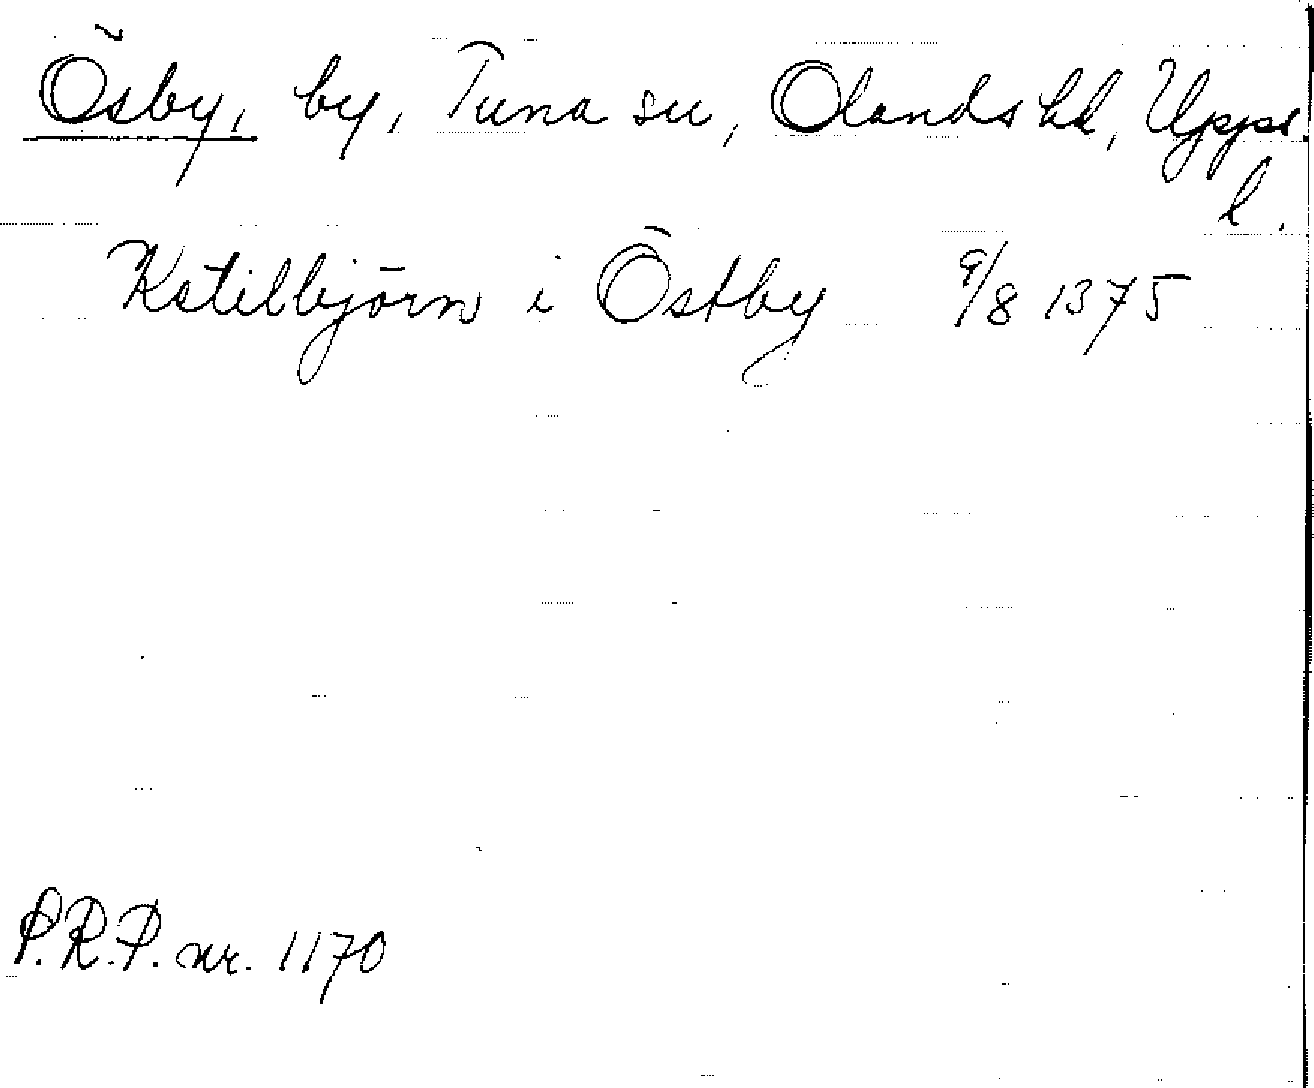 Ösby, by, Tuna sn, Olands hd, Upps.
l.
Ketilbjörn i Östby 9/8 1375
P.R.P. nr. 1170